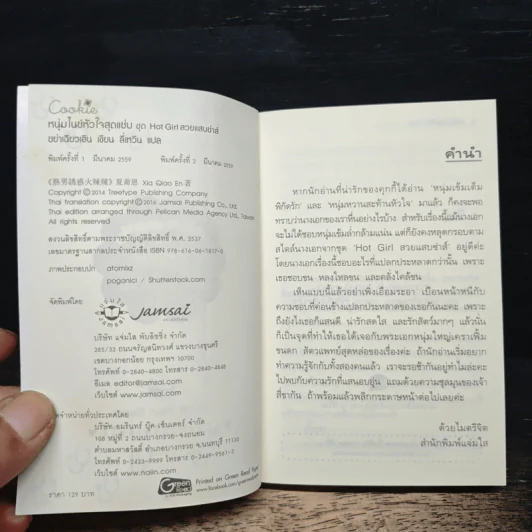 Cookie
หนุ่มไนซ์หัวใจสุดแซ่บ ชุด Hot Girl สวยแสบซ่าส์
เซี่ยเฉียวเอิน เขียน ลี่เหวิน แปล
พิมพ์ครั้งที่ 1 มีนาคม 2559 พิมพ์ครั้งที่ 2 มีนาคม 2559
《熱男誘惑火辣辣》夏喬恩 Xia Qiao En 著
Copyright © 2014 Treetype Publishing Company
Thai translation copyright © 2016 Jamsai Publishing Co., Ltd.
Thai edition arranged through Pelican Media Agency Ltd., Taiwan
All rights reserved.
สงวนลิขสิทธิ์ตามพระราชบัญญัติลิขสิทธิ์ พ.ศ. 2537
เลขมาตรฐานสากลประจำหนังสือ ISBN 978-616-06-1817-0
ภาพประกอบปก atomixz
poganici / Shutterstock.com
จัดพิมพ์โดย
jamsai
บริษัท แจ่มใส พับลิชชิ่ง จำกัด
285/33 ถนนจรัญสนิทวงศ์ แขวงบางขุนศรี
เขตบางกอกน้อย กรุงเทพฯ 10700
โทรศัพท์ 0-2840-4800 โทรสาร 0-2840-4848
อีเมล editor@jamsai.com
เว็บไซต์ www.jamsai.com
จัดจำหน่ายทั่วประเทศโดย
บริษัท อมรินทร์ บุ๊ค เซ็นเตอร์ จำกัด
108 หมู่ที่ 2 ถนนบางกรวย-จงถนอม
ตำบลมหาสวัสดิ์ อำเภอบางกรวย จ.นนทบุรี 11130
โทรศัพท์ 0-2423-9999 โทรสาร 0-2449-9561-2
เว็บไซต์ www.naiin.com
ราคา 129 บาท
Green Read
Printed on Green Read Paper
คำนำ
หากนักอ่านที่น่ารักของคุกกี้ได้อ่าน 'หนุ่มเข้มเต็ม
พิกัดรัก' และ 'หนุ่มหวานสะท้านหัวใจ' มาแล้ว ก็คงจะพอ
ทราบว่านางเอกของเราที่นี่อย่างไรบ้าง สำหรับเรื่องนี้แม้นางเอก
จะไม่ได้ชอบหนุ่มเข้มล่ำกล้ามแน่น แต่ก็ยังคงหลุดกรอบตาม
สไตล์นางเอกจากชุด 'Hot Girl สวยแสบซ่าส์' อยู่ดีค่ะ
โดยนางเอกเรื่องนี้ชอบอะไรที่แปลกประหลาดกว่านั้น เพราะ
เธอชอบขน หลงใหลขน และคลั่งไคล้ขน
เห็นแบบนี้แล้วอย่าเพิ่งเอือมระอา เบือนหน้าหนีกับ
ความชอบที่ค่อนข้างแปลกประหลาดของเธอกันนะคะ เพราะ
ถึงยังไงเธอก็แสนดี น่ารักสดใส และรักสัตว์มากๆ แล้วนั่น
ก็เป็นจุดที่ทำให้เธอได้เจอกับพระเอกหนุ่มใหญ่เคราเฟิ้ม
ขนดก สัตวแพทย์สุดหล่อของเรื่องค่ะ ถ้านักอ่านเริ่มอยาก
ทำความรู้จักกับทั้งสองคนแล้ว เราจะรอช้ากันอยู่ทำไมล่ะคะ
ไปพบกับความรักที่แสนอบอุ่น แถมด้วยความซุลมุนของเจ้า
สี่ขากัน ถ้าพร้อมแล้วพลิกกระดาษหน้าต่อไปเลยค่ะ
ด้วยไมตรีจิต
สำนักพิมพ์แจ่มใส